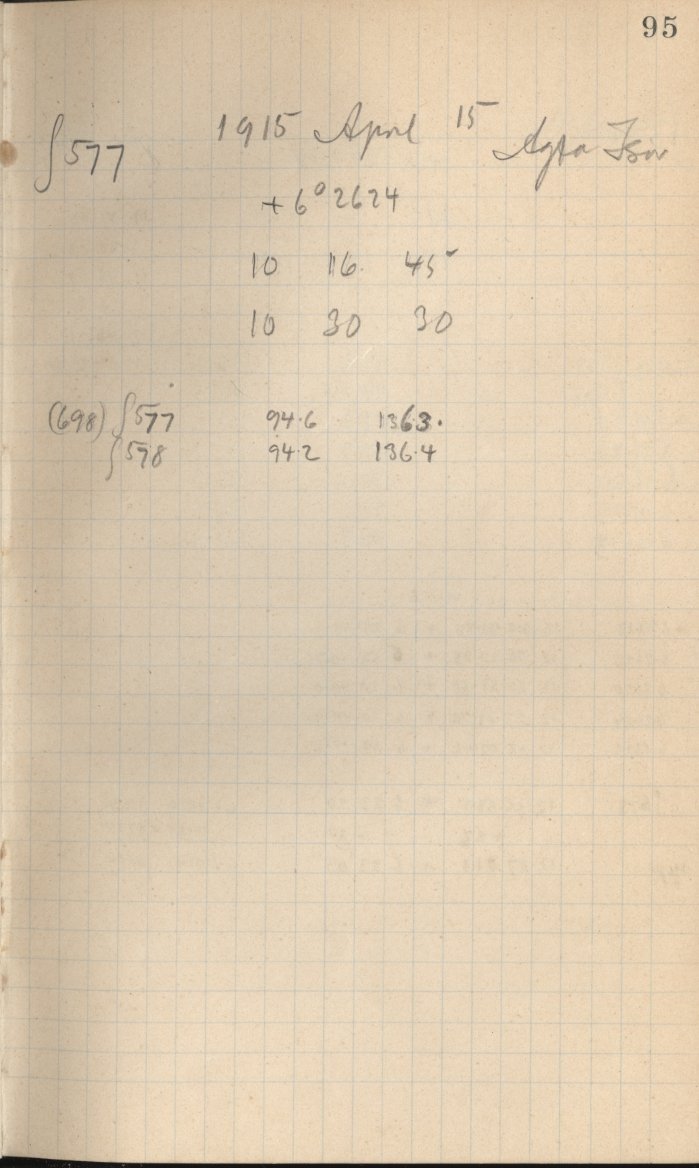 95
∫577 1915 April 15
+6° 2624
10 16 45
10 30 30
(698) ∫577 94.6 1363.
∫578 94.2 136.4